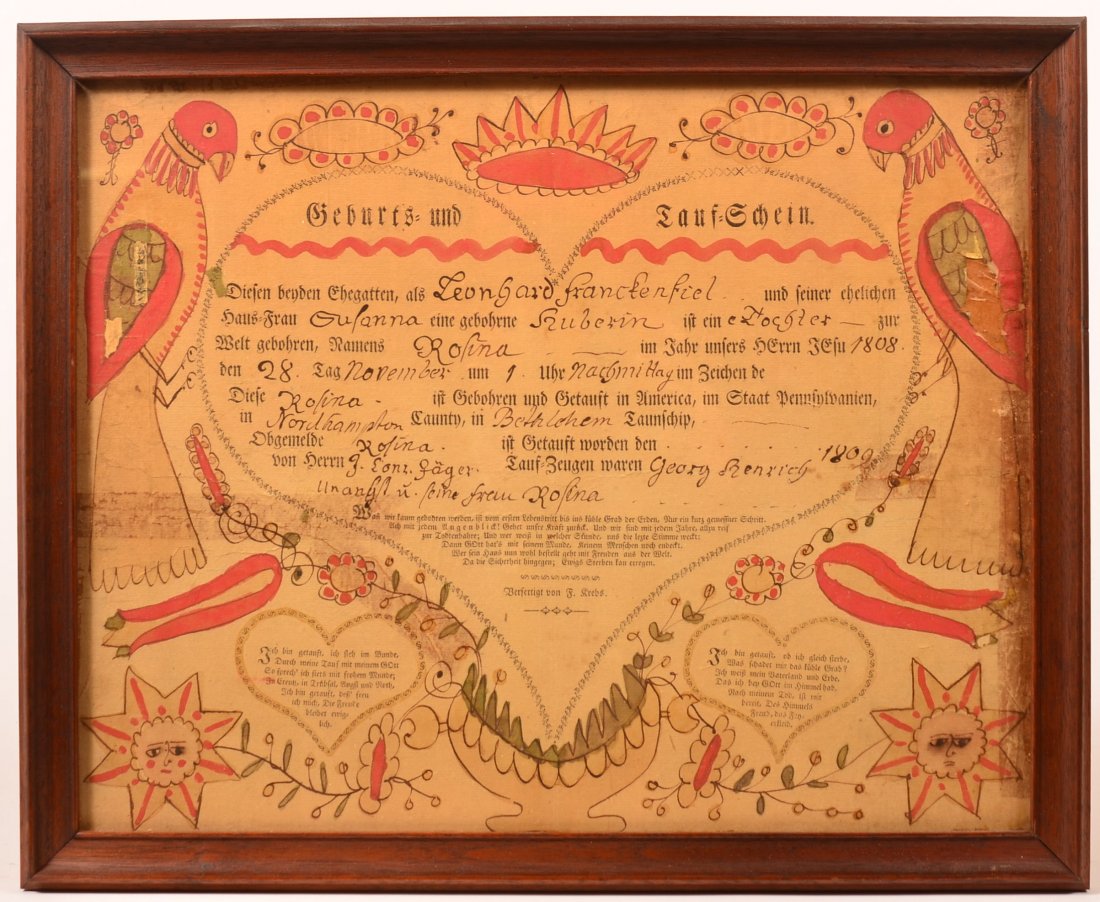 Geburts- und Tauf-Schein.
Diesen beyden Ehegatten, als Leonhard Franckenfiel und seiner ehelichen
Haus-Frau Susanna eine gebohrne Huberin ist ein e Tochter zur
Welt gebohren, Namens Rosina im Jahr unsers HErrn JEsu 1808.
den 28. Tag November um 1. Uhr Nachmittag im Zeichen de
Diese Rosina ist Gebohren und Getauft in America, im Staat Pennsylvanien,
in Northampton Caunty, in Bethlehem Taunschip,
Obgemelde Rosina ist Getauft worden den 1809
von Herrn J. Conr. Jäger. Tauf-Zeugen waren Georg Henrich
u. seine frau Rosina
Was wir kaum gebohren werden, ist vom ersten Lebenstritt bis ins kühle Grab der Erden, Nur ein kurz gemeßner Schritt.
Ach mit jedem Augenblick! Gehet unsre Kraft zurück. Und wir sind mit jedem Jahre, allzu reif
zur Todtenbahre; Und wer weiß in welcher Stunde, uns die lezte Stimme weckt:
Dann GOtt hat's mit seinem Munde, Keinem Menschen noch endeckt.
Wer sein Haus nun wohl bestellt geht mit Freuden aus der Welt.
Da die Sicherheit hingegen; Ewigs Sterben kan erregen.
Verfertigt von F. Krebs.
Ich bin getauft, ich steh im Bunde,
Durch meine Tauf mit meinem GOtt
So sprech' ich stets mit frohem Munde;
In Creutz, in Trübsal, Angst und Noth,
Ich bin getauft, deß' freu
ich mich, Die Freude
bleibet ewig-
lich.
Ich bin getauft, ob ich gleich sterbe,
Was schadet mir das kühle Grab?
Ich weiß mein Vaterland und Erbe,
Das ich bey GOtt im Himmel hab.
Nach meinem Tod, ist mir
bereit, Des Himmels
Freud, das Fey-
erkleid.